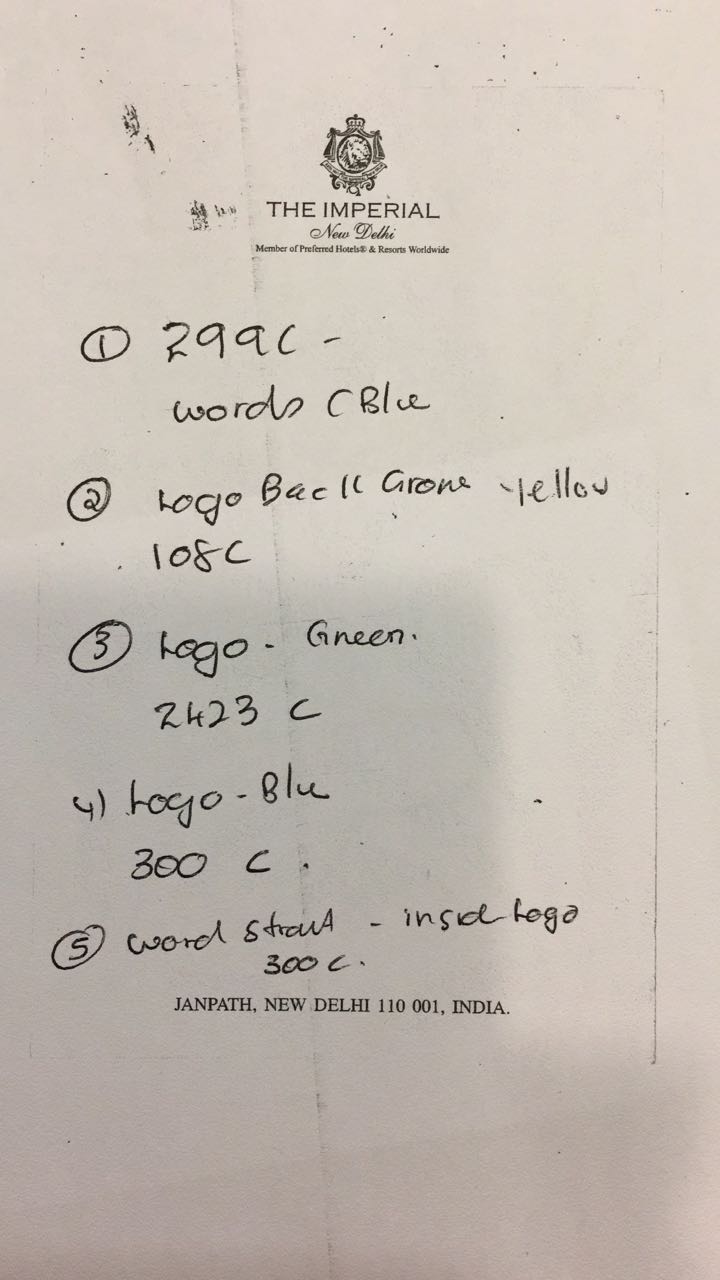 THE IMPERIAL
New Delhi
Member of Preferred Hotels® & Resorts Worldwide
① 299C -
words C Blue
② Logo Back Grone yellow
108C
③ Logo - Green.
2423 C
4) Logo - Blue
300 C.
⑤ word - inside Logo
300 C.
JANPATH, NEW DELHI 110 001, INDIA.